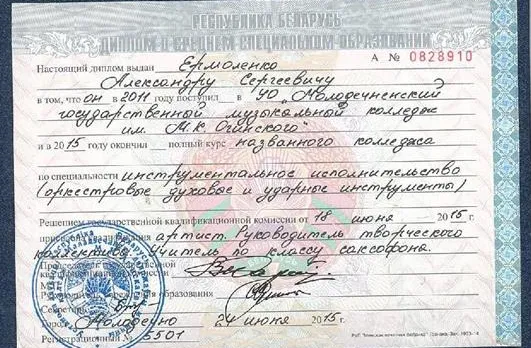 РЕСПУБЛИКА БЕЛАРУСЬ
ДИПЛОМ О СРЕДНЕМ СПЕЦИАЛЬНОМ ОБРАЗОВАНИИ
А № 0828910
Настоящий диплом выдан Ермоленко
Александру Сергеевичу
в том, что он в 2011 году поступил в УО "Молодечненский
государственный музыкальный колледж
им. М.К. Огинского"
и в 2015 году окончил полный курс названного колледжа
по специальности инструментальное исполнительство
(оркестровые духовые и ударные инструменты)
Решением государственной квалификационной комиссии от 18 июня 2015 г.
артист. Руководитель творческого
коллектива. Учитель по классу саксофона.
Председатель государственной
образования
Секретарь
Город Молодечно 24 июня 2015 г.
Регистрационный № 5501